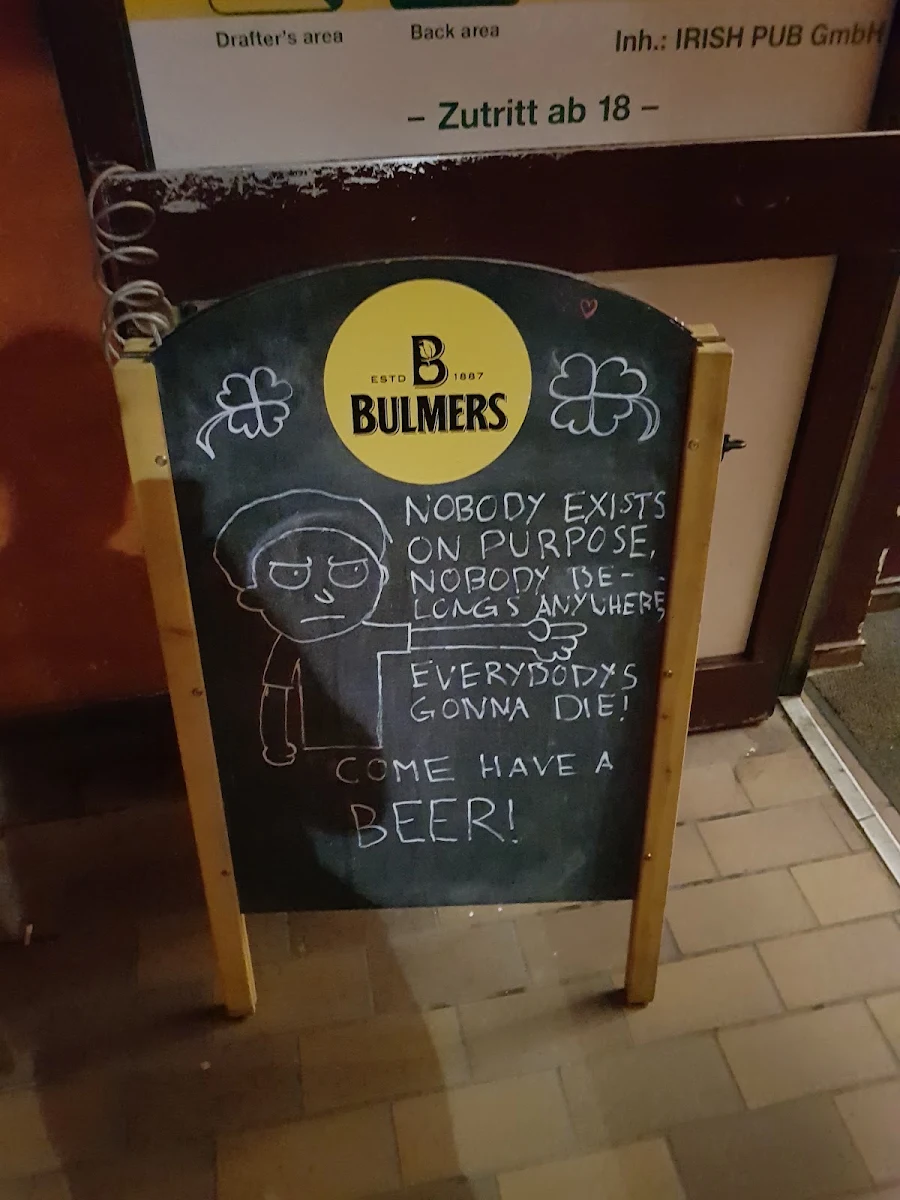 Drafter's area
Back area
Inh.: IRISH PUB GmbH
– Zutritt ab 18 –
B
ESTD 1887
BULMERS
NOBODY EXISTS
ON PURPOSE,
NOBODY BE-
LONGS ANYWHERE,
EVERYBODYS
GONNA DIE!
COME HAVE A
BEER!